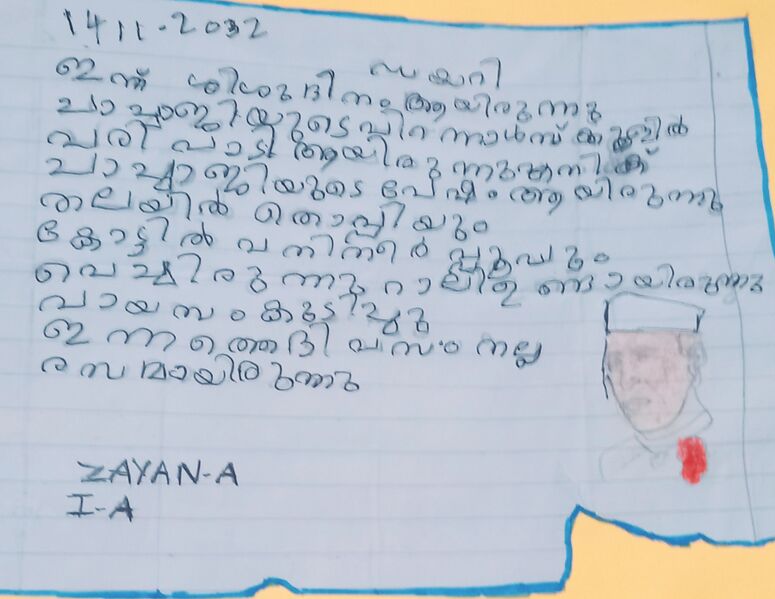 14 11.2032
ഡയറി
ഇന്ന് ശിശുദിനം ആയിരുന്നു
ചാച്ചാജിയുടെ പിറന്നാൾ സ്കൂളിൽ
പരിപാടി ആയിരുന്നു എനിക്ക്
ചാച്ചാജിയുടെ വേഷം ആയിരുന്നു
തലയിൽ തൊപ്പിയും
കോട്ടിൽ പനിനീർ പ്പൂവും
വെച്ചിരുന്നു റാലി ഉണ്ടായിരുന്നു
പായസം കുടിച്ചു
ഇന്നത്തെ ദിവസം നല്ല
രസമായിരുന്നു
ZAYAN-A
I-A